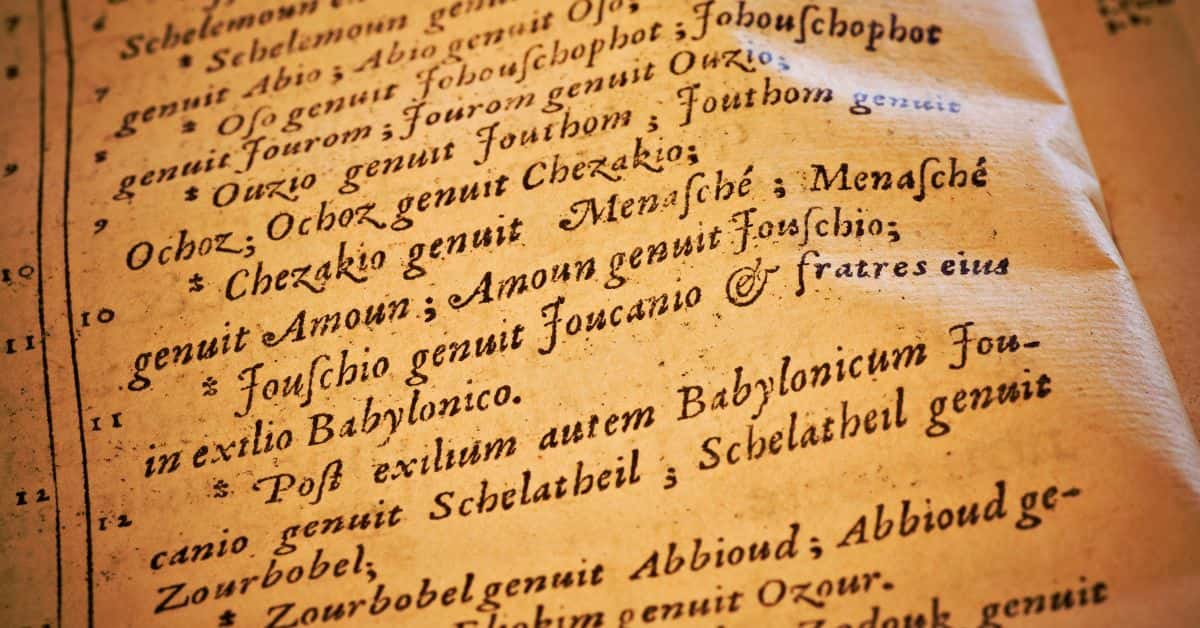 Schelemoun
* Schelemoun genuit
7 7 genuit Abio ; Abio genuit Oſo;
8 * Oſo genuit Johouſchophot ; Johouſchophot
8 genuit Jourom ; Jourom genuit Ouzio;
9 * Ouzio genuit Jouthom ; Jouthom genuit
9 Ochoz; Ochoz genuit Chezakio;
10 * Chezakio genuit Menaſché ; Menaſché
10 genuit Amoun ; Amoun genuit Jouſchio;
11 * Jouſchio genuit Joucanio & fratres eius
11 in exilio Babylonico.
12 * Poſt exilium autem Babylonicum Jou-
12 canio genuit Schelatheil ; Schelatheil genuit
Zourbobel;
* Zourbobel genuit Abbioud ; Abbioud ge-
genuit Ozour.
Zadouk genuit